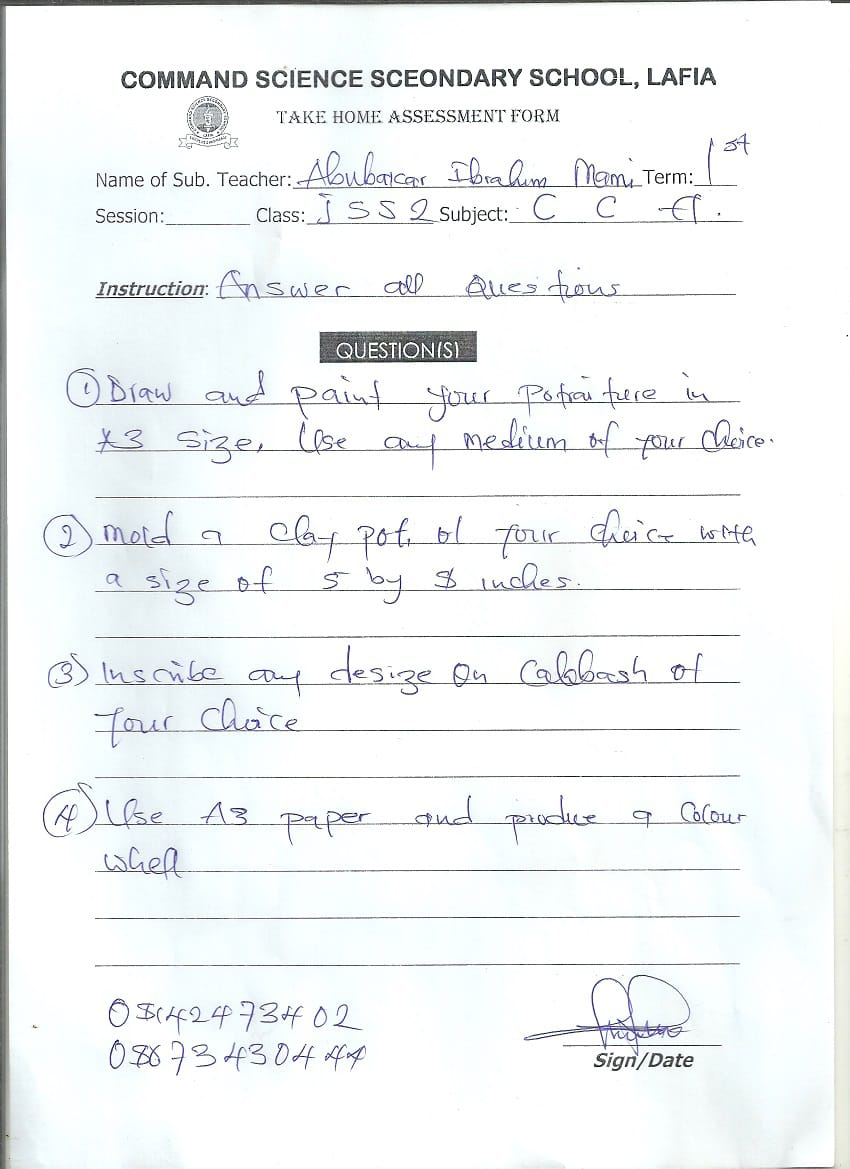 COMMAND SCIENCE SCEONDARY SCHOOL, LAFIA
TAKE HOME ASSESSMENT FORM
Name of Sub. Teacher: Abubakar Ibrahim Mami Term: 1st
Session: Class: JSS2 Subject: C C A.
Instruction: Answer all Questions
QUESTION(S)
① Draw and paint your Potraiture in
A3 Size. Use any medium of your choice.
② Mold a clay pot of your choice with
a size of 5 by 8 inches.
③ Inscribe any desize on Calabash of
your choice
④ Use A3 paper and produce a Colour
whell
Sign/Date